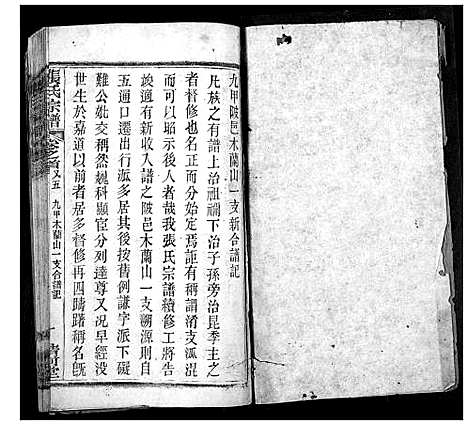 九甲陂邑木蘭山一支新合譜記
凡族之有譜上治祖禰下治子孫旁治昆季主之
者督修必自分別始定焉詎有稱謂淆支派混
而可以昭示後人者哉我張氏宗譜續修工將告
竣適有新收入譜之陂邑木蘭山一支溯源則自
五通口遷出行派多居其後按舊例謙字派下礙
難公妣交稱然巍科顯宦分列達尊又况早經沒
世生於嘉道以前者居多督修再四躊躇稱名旣
張氏宗譜 卷之首又五 九甲木蘭山一支合譜記